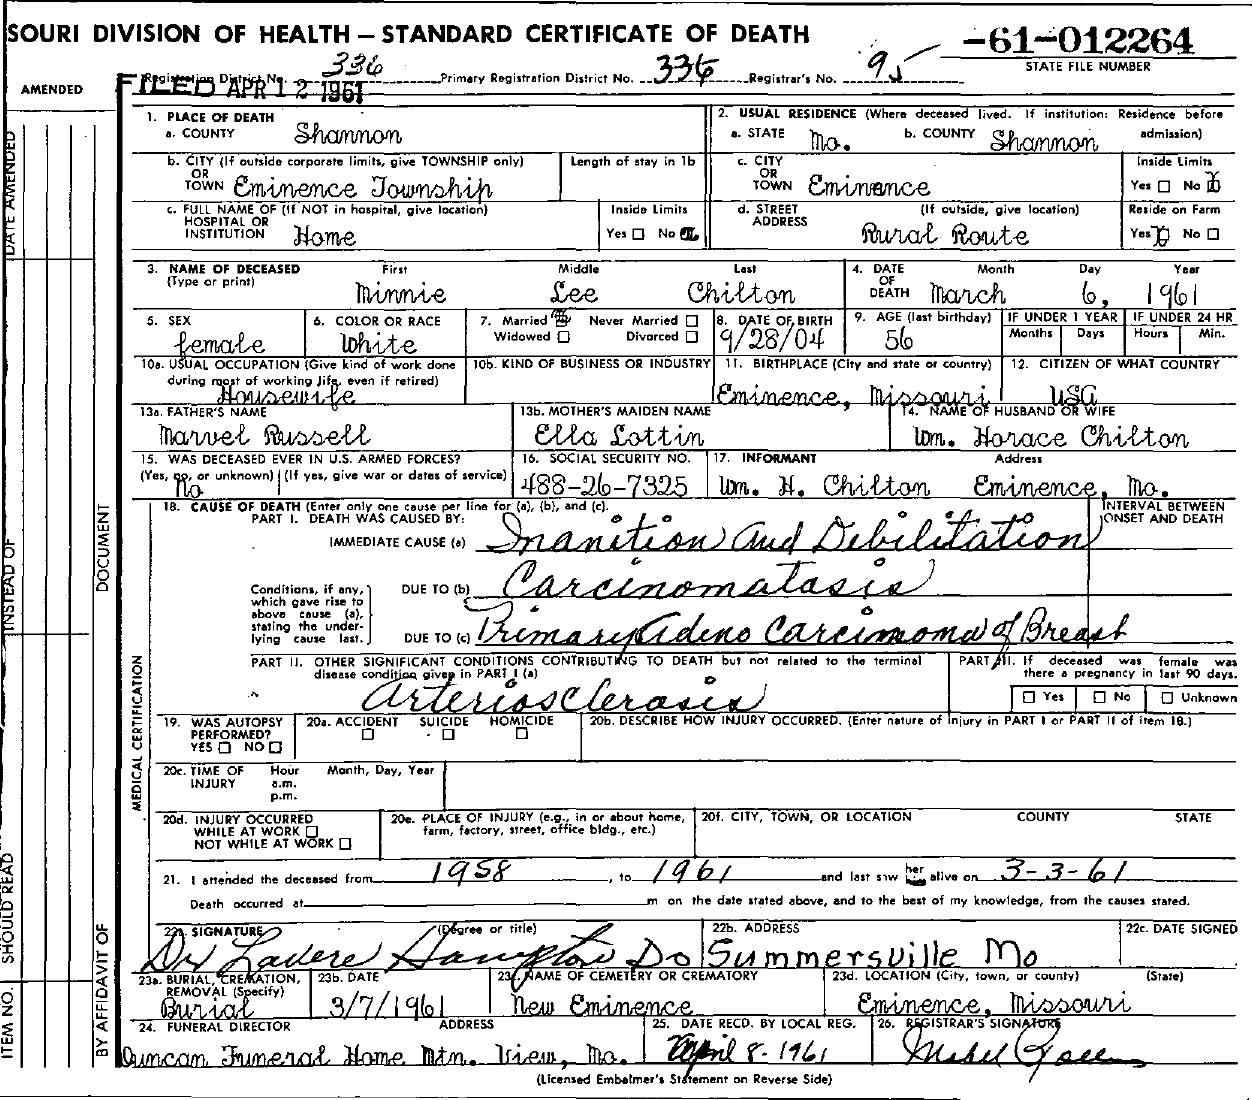 SOURI DIVISION OF HEALTH – STANDARD CERTIFICATE OF DEATH
-61-012264
STATE FILE NUMBER
AMENDED
FILED APR 12 1961
Registration District No. 336 Primary Registration District No. 336 Registrar's No. 95
1. PLACE OF DEATH
a. COUNTY Shannon
2. USUAL RESIDENCE (Where deceased lived. If institution: Residence before admission)
a. STATE Mo. b. COUNTY Shannon
b. CITY (If outside corporate limits, give TOWNSHIP only)
OR
TOWN Eminence Township
Length of stay in 1b
c. CITY
OR
TOWN Eminence
Inside Limits
Yes ☐ No ☒
c. FULL NAME OF (If NOT in hospital, give location)
HOSPITAL OR
INSTITUTION Home
Inside Limits
Yes ☐ No ☒
d. STREET
ADDRESS
(If outside, give location)
Rural Route
Reside on Farm
Yes ☒ No ☐
3. NAME OF DECEASED
(Type or print)
First Middle Last
Minnie Lee Chilton
4. DATE
OF
DEATH
Month Day Year
March 6, 1961
5. SEX
female
6. COLOR OR RACE
White
7. Married ☒ Never Married ☐
Widowed ☐ Divorced ☐
8. DATE OF BIRTH
9/28/04
9. AGE (last birthday)
56
IF UNDER 1 YEAR
Months Days
IF UNDER 24 HR
Hours Min.
10a. USUAL OCCUPATION (Give kind of work done
during most of working life, even if retired)
Housewife
10b. KIND OF BUSINESS OR INDUSTRY
11. BIRTHPLACE (City and state or country)
Eminence, Missouri
12. CITIZEN OF WHAT COUNTRY
USA
13a. FATHER'S NAME
Marvel Russell
13b. MOTHER'S MAIDEN NAME
Ella Lottin
14. NAME OF HUSBAND OR WIFE
Wm. Horace Chilton
15. WAS DECEASED EVER IN U.S. ARMED FORCES?
(Yes, no, or unknown) (If yes, give war or dates of service)
No
16. SOCIAL SECURITY NO.
488-26-7325
17. INFORMANT Address
Wm. H. Chilton Eminence, Mo.
18. CAUSE OF DEATH (Enter only one cause per line for (a), (b), and (c).
PART I. DEATH WAS CAUSED BY:
INTERVAL BETWEEN
ONSET AND DEATH
IMMEDIATE CAUSE (a) Inanition and Debilitation
Conditions, if any,
which gave rise to
above cause (a),
stating the under-
lying cause last.
DUE TO (b) Carcinomatasis
DUE TO (c) Primary Adeno Carcinoma of Breast
PART II. OTHER SIGNIFICANT CONDITIONS CONTRIBUTING TO DEATH but not related to the terminal
disease condition given in PART I (a)
Arteriosclerosis
PART III. If deceased was female was
there a pregnancy in last 90 days.
☐ Yes ☐ No ☐ Unknown
19. WAS AUTOPSY
PERFORMED?
YES ☐ NO ☐
20a. ACCIDENT SUICIDE HOMICIDE
☐ ☐ ☐
20b. DESCRIBE HOW INJURY OCCURRED. (Enter nature of injury in PART I or PART II of item 18.)
20c. TIME OF
INJURY
Hour
a.m.
p.m.
Month, Day, Year
20d. INJURY OCCURRED
WHILE AT WORK ☐
NOT WHILE AT WORK ☐
20e. PLACE OF INJURY (e.g., in or about home,
farm, factory, street, office bldg., etc.)
20f. CITY, TOWN, OR LOCATION COUNTY STATE
21. I attended the deceased from 1958, to 1961 and last saw her alive on 3-3-61
Death occurred at m on the date stated above, and to the best of my knowledge, from the causes stated.
22a. SIGNATURE (Degree or title)
Dr Hampton Do
22b. ADDRESS
Summersville Mo
22c. DATE SIGNED
23a. BURIAL, CREMATION,
REMOVAL (Specify)
Burial
23b. DATE
3/7/1961
23c. NAME OF CEMETERY OR CREMATORY
New Eminence
23d. LOCATION (City, town, or county) (State)
Eminence, Missouri
24. FUNERAL DIRECTOR ADDRESS
Duncan Funeral Home Mtn. View, Mo.
25. DATE RECD. BY LOCAL REG.
April 8-1961
26. REGISTRAR'S SIGNATURE
Mabel
(Licensed Embalmer's Statement on Reverse Side)
DATE AMENDED
INSTEAD OF
SHOULD READ
ITEM NO.
DOCUMENT
BY AFFIDAVIT OF
MEDICAL CERTIFICATION